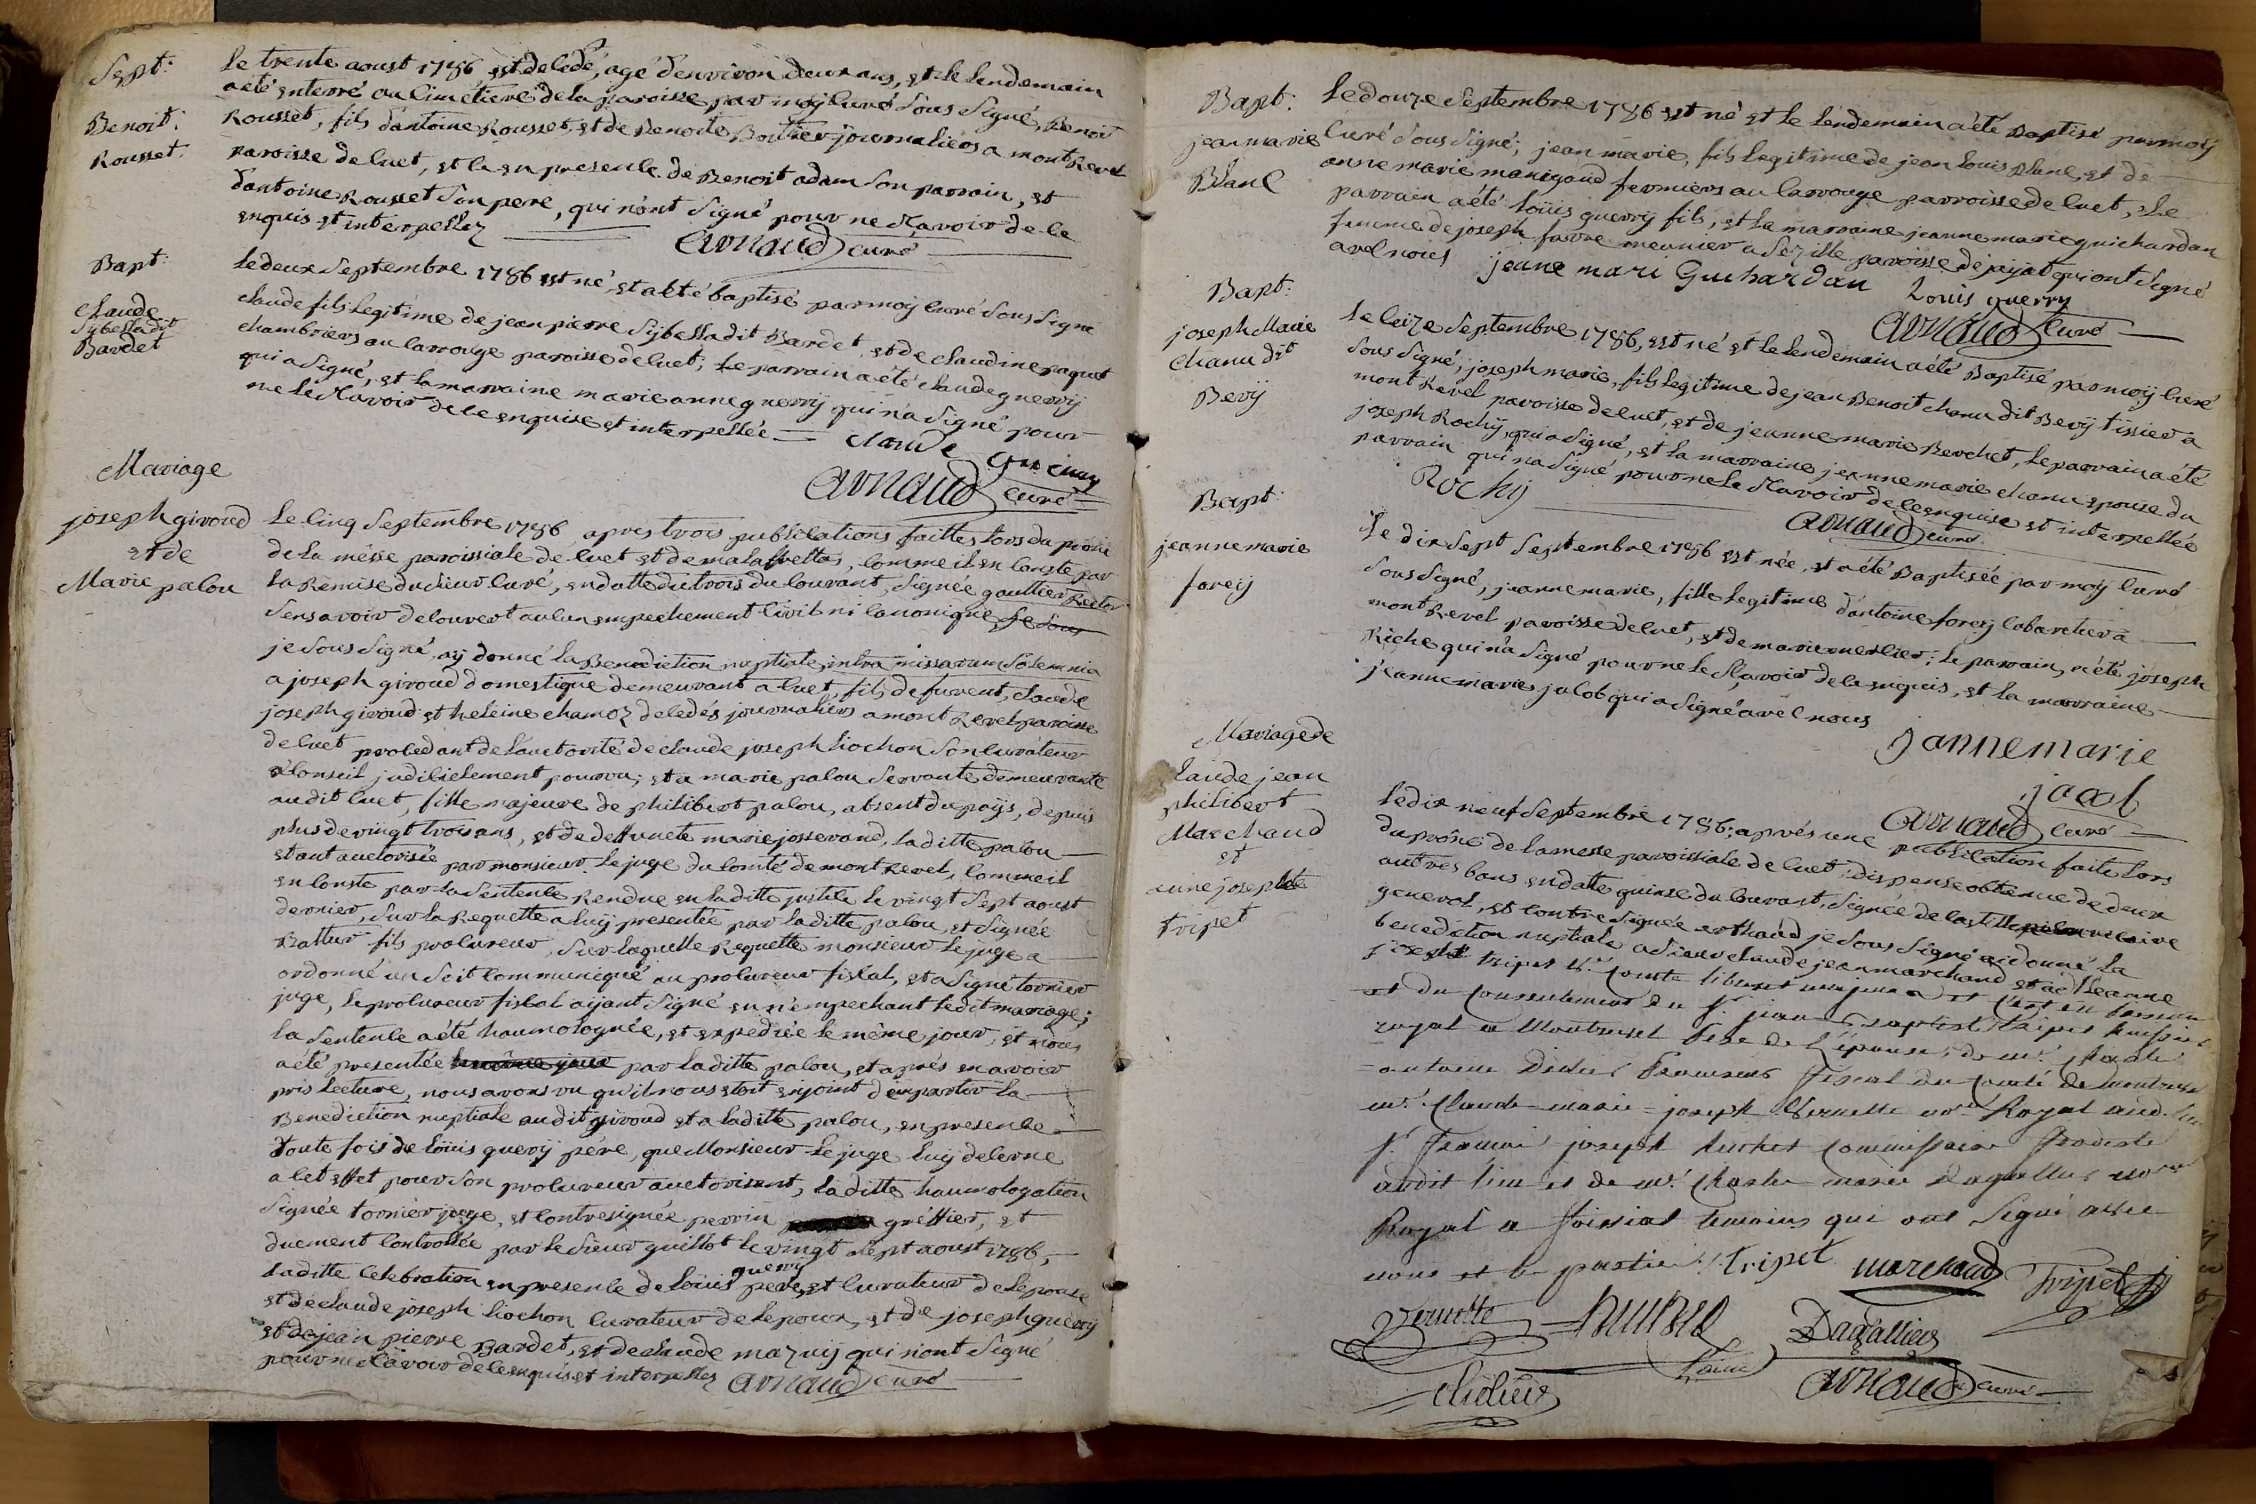 Sept:
Benoit:
Rousset.
Le trente aoust 1786 est decedé, agé d'environ deux ans, et le lendemain
a été enterré au cimetiere de la paroisse par moy curé sous signé, Benoit
Rousset, fils d'antoine Rousset, et de Benoite Bouthier journaliers a mont Revel
paroisse de cuet, et ce en presence de Benoit adam son parrain, et
d'antoine Rousset son pere, qui n'ont signé pour ne sçavoir de ce
enquis et interpellez
arnaud curé
Bapt:
Claude
Sybella dit
Bardet
Le deux Septembre 1786 est né, et a eté baptisé par moy curé sous signé
claude fils legitime de jean pierre Sybella dit Bardet, et de claudine paquet
chambriers au larrouge paroisse de cuet; le parrain a été claude guerry
qui a signé, et la marraine marie anne guerry qui n'a signé pour
ne le sçavoir de ce enquise et interpellée = claude guerry
arnaud curé
Mariage
joseph giroud
et de
Marie palou
Le cinq Septembre 1786 apres trois publications faittes lors du prone
de la messe paroissiale de cuet et de malafretta, comme il en conste par
la Remise du sieur curé, en datte du trois du courant, signée gaultier Rector
sens avoir decouvert aucun empechement civil ni canonique, je sous
je sous signé ay donné la Benediction nuptiale, intra missarum solemnia
a joseph giroud domestique demeurant a cuet, fils de furent claude
joseph giroud et heleine chamoz decedés journaliers a mont Revel paroisse
de cuet procedant de l'auctorité de claude joseph liochon son curateur
et conseil judiciciement pourvu; et a marie palou servante demeurante
au dit cuet, fille majeure de philibert palou, absent du paÿs, depuis
plus de vingt trois ans, et de deffuncte marie josserand, laditte palou
etant auctorisée par monsieur le juge du comté de mont Revel, comme il
en conste par la sentence Rendue en laditte justice le vingt sept aoust
dernier, sur la Requette a luÿ presentée par laditte palou, et signée
Battur fils procureur, sur laquelle Requette monsieur le juge a
ordonné un soit communiqué au procureur fiscal, et a signé tornier
juge, le procureur fiscal aijant signé en n'empechant le dit mariage;
la sentence a été haumologuée, et expediée le même jour, et nous
a été presentée le même jour par laditte palou, et aprés en avoir
pris lecture, nous avons vu qu'il nous etoit enjoint d'impartir la
Benediction nuptiale au dit giroud et a laditte palou, en presence
toute fois de Loüis guerÿ pére, que Monsieur le juge luÿ decerne
a cet effet pour son procureur auctorisant, laditte haumologation
signée tornier juge, et contresignée perrin greffier, et
duement controllée par le sieur guillot le vingt sept aoust 1786,
laditte celebration en presence de Loüis guerry pere, et curateur de l'epouse
et de claude joseph liochon curateur de l'epoux, et de joseph guerÿ
et de jean pierre Bardet, et de claude mazuij qui n'ont signé
pour ne sçavoir de ce enquis et interpellez arnaud curé
Bapt:
jean marie
Blanc
Le douze Septembre 1786 est né et le lendemain a été Baptisé par moy
curé sous signé, jean marie, fils legitime de jean Louis Blanc, et de
anne marie manigaud fermiers au larrouge parroisse de cuet, Le
parrain a été Loüis guerry fils, et la marraine jeanne marie guichardan
femme de joseph favre meunier a Sezille, paroisse de jaÿat qui ont signé
avec nous jeane mari Guchardan Louis guerry
arnaud curé
Bapt:
joseph Marie
chanu dt
Bevÿ
Le seize Septembre 1786, est né et le lendemain a été Baptisé, par moy curé
sous signé, joseph marie, fils legitime de jean Benoit chanu dit Bevÿ tissier a
mont Revel paroisse de cuet, et de jeanne marie Berchet, le parrain a été
joseph Rochÿ, qui a signé, et la marraine jeanne marie chanu epouse du
parrain qui n'a signé pour ne le sçavoir de ce enquise et interpellée
Rochÿ
arnaud curé
Bapt:
jeanne marie
foreÿ
Le dix sept Septembre 1786 est née, et a été Baptisée par moy curé
sous signé, jeanne marie, fille legitime d'antoine foreÿ cabaretier a
mont Revel paroisse de cuet, et de marie merlier; le parrain, a été joseph
Riche qui n'a signé pour ne le sçavoir de ce enquis, et la marraine
jeanne marie jacob qui a signé avec nous
jannemarie
jacob
arnaud curé
Mariage de
Claude jean
philibert
Marchand
et
anne josephte
tripet
Le dix neuf Septembre 1786; aprés une publication faite lors
du prône de la messe paroissiale de cuet; dispense obtenue de deux
autres bans en datte quinse du courant, signée de la vicaire
general, et contresignée je sous signé ai donné la
benediction nuptiale a Sieur claude jean marchand et a dlle anne
joseph tripet
et du consentement du Sr. jean Baptiste tripet huissier
royal a Montrevel pere de l'épouse, de mr. Charle
antoine Didier procureur fiscal du comté de montrevel
mr. Claude marie joseph Vernette Royal aud. lieu
Sr. françois joseph commissaire
audit lieu et de mr. Charle marie Dagallier
Royal a foissiat temoins qui ont signé avec
nous et les parties. tripet marchand Tripet
Vernette Dagallier
Didier arnaud curé